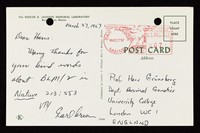 THE ROSCOE B. JACKSON MEMORIAL LABORATORY
March 27, 1967
Dear Hans
Many thanks for
your kind words
about BL/M/V in
Nature 213:553
Earl Green
POST CARD
Address
PLACE
STAMP
HERE
Prof. Hans Grüneberg
Dept. Animal Genetics
University College
London WC 1
ENGLAND